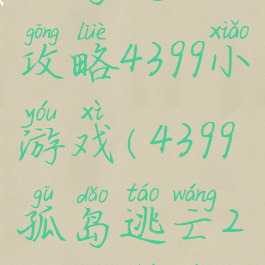 gōng lüè xiǎo
攻略4399小
yóu xì
游戏(4399
gū dǎo táo wáng
孤岛逃亡2